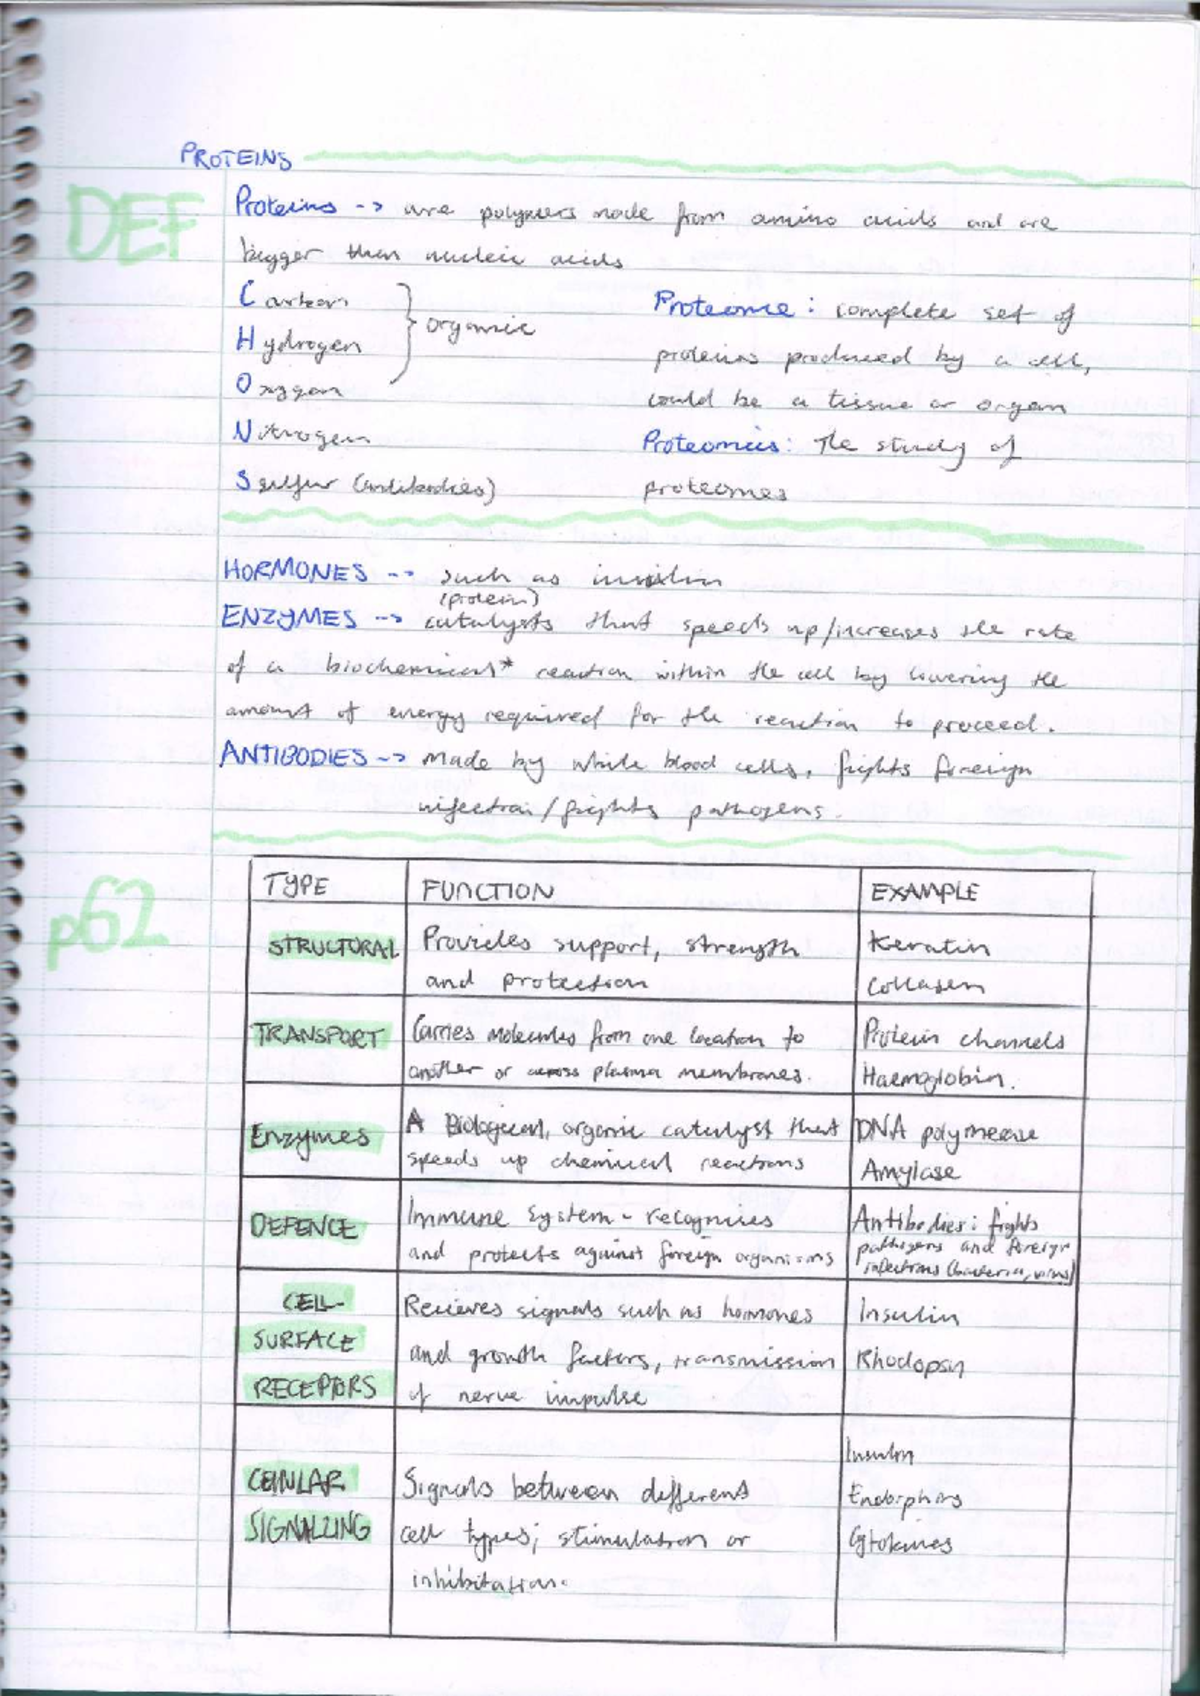 PROTEINS
DEF
Proteins -> are polymers made from amino acids and are
bigger than nucleic acids
Carbon
Hydrogen
Oxygen
} organic
Nitrogen
Sulfur (antibodies)
Proteome: complete set of
proteins produced by a cell,
could be a tissue or organ
Proteomics: The study of
proteomes
HORMONES --> such as insulin
(protein)
ENZYMES --> catalysts that speeds up/increases the rate
of a biochemical* reaction within the cell by lowering the
amount of energy required for the reaction to proceed.
ANTIBODIES --> made by white blood cells, fights foreign
infection/fights pathogens.
p62
TYPE FUNCTION EXAMPLE
STRUCTURAL Provides support, strength Keratin
and protection Collagen
TRANSPORT Carries molecules from one location to Protein channels
another or across plasma membranes. Haemoglobin.
Enzymes A Biological, organic catalyst that DNA polymerase
speeds up chemical reactions Amylase
DEFENCE Immune system - recognises Antibodies: fights
and protects against foreign organisms pathogens and foreign
infections (bacteria, virus)
CELL- Recieves signals such as hormones Insulin
SURFACE and growth factors, transmission Rhodopsin
RECEPTORS of nerve impulse
Insulin
CELLULAR Signals between different Endorphins
SIGNALLING cell types; stimulation or Cytokines
inhibitation.